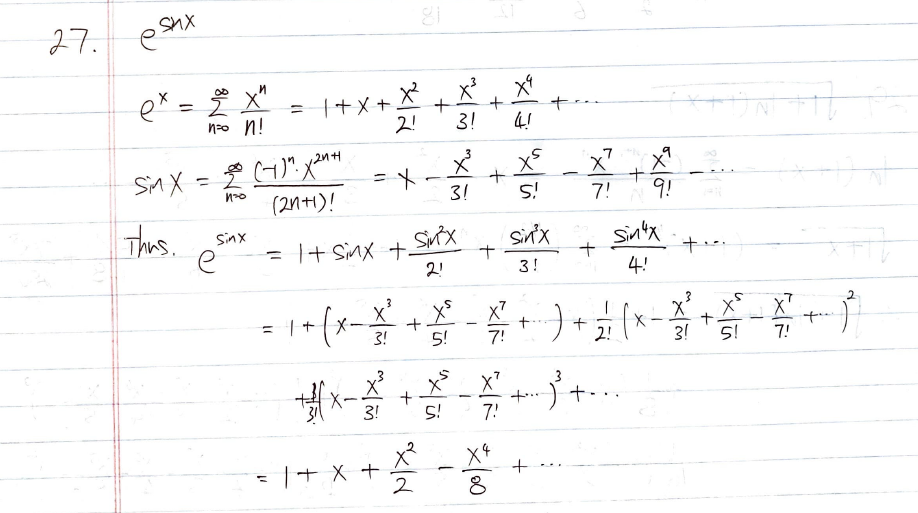 27. e^{sinx}
e^x = \sum_{n=0}^{∞} \frac{x^n}{n!} = 1 + x + \frac{x^2}{2!} + \frac{x^3}{3!} + \frac{x^4}{4!} + ...
sin x = \sum_{n=0}^{∞} \frac{(-1)^n · x^{2n+1}}{(2n+1)!} = x - \frac{x^3}{3!} + \frac{x^5}{5!} - \frac{x^7}{7!} + \frac{x^9}{9!} - ...
Thus. e^{sinx} = 1 + sinx + \frac{sin^2x}{2!} + \frac{sin^3x}{3!} + \frac{sin^4x}{4!} + ...
= 1 + (x - \frac{x^3}{3!} + \frac{x^5}{5!} - \frac{x^7}{7!} + ...) + \frac{1}{2!} (x - \frac{x^3}{3!} + \frac{x^5}{5!} - \frac{x^7}{7!} + ...)^2
+ \frac{1}{3!} (x - \frac{x^3}{3!} + \frac{x^5}{5!} - \frac{x^7}{7!} + ...)^3 + ...
= 1 + x + \frac{x^2}{2} - \frac{x^4}{8} + ...